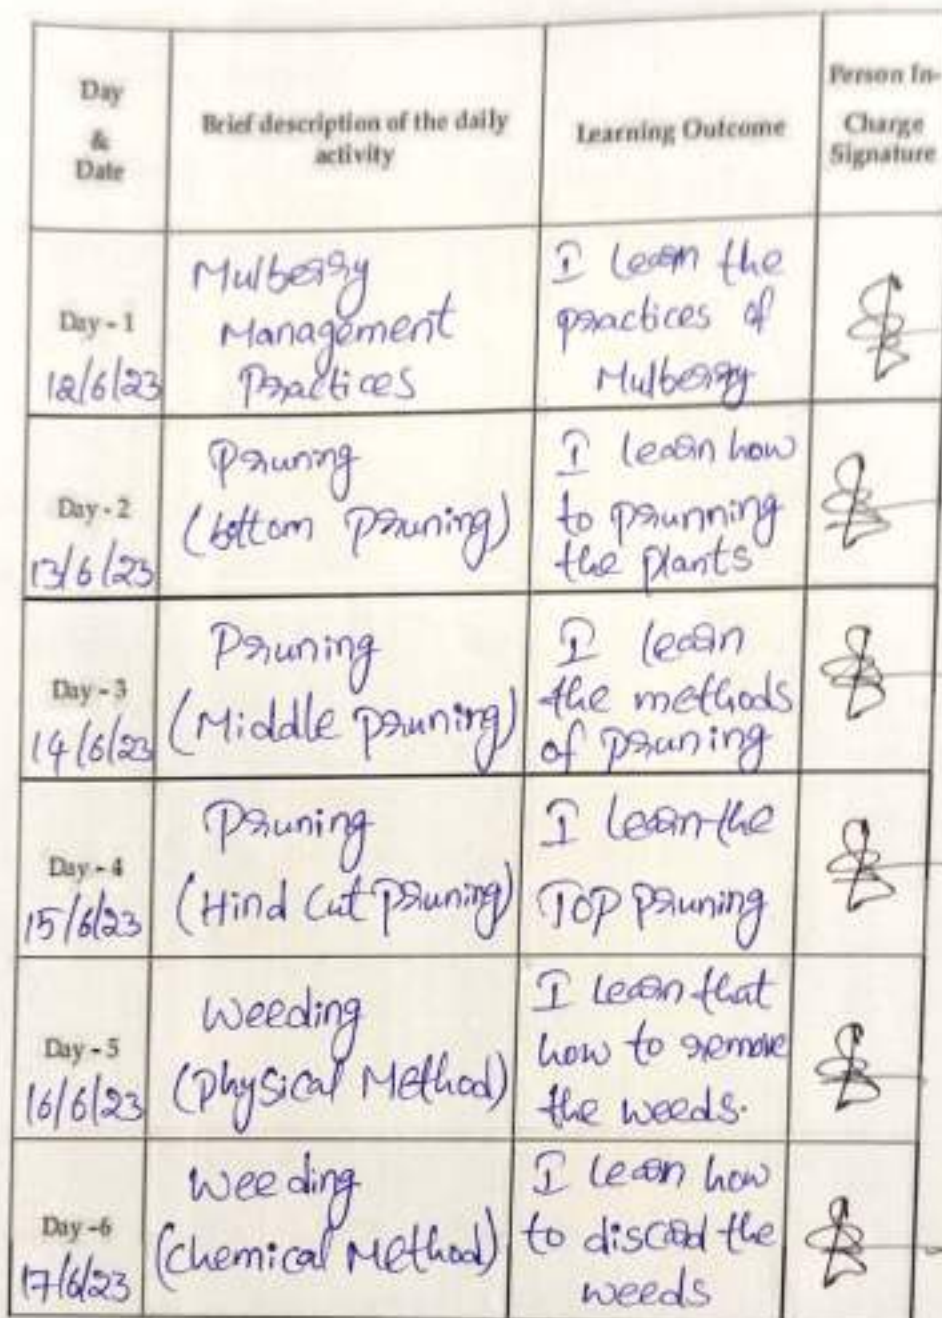 Day
&
Date
Brief description of the daily
activity
Learning Outcome
Person In-
Charge
Signature
Day - 1
12/6/23
Mulberry
Management
Practices
I learn the
practices of
Mulberry
Day - 2
13/6/23
Pruning
(bottom pruning)
I learn how
to prunning
the plants
Day - 3
14/6/23
Pruning
(Middle pruning)
I learn
the methods
of pruning
Day - 4
15/6/23
Pruning
(Hind Cut pruning)
I learn the
TOP pruning
Day - 5
16/6/23
Weeding
(physical Method)
I learn that
how to remove
the weeds.
Day -6
17/6/23
Weeding
(chemical Method)
I learn how
to discad the
weeds